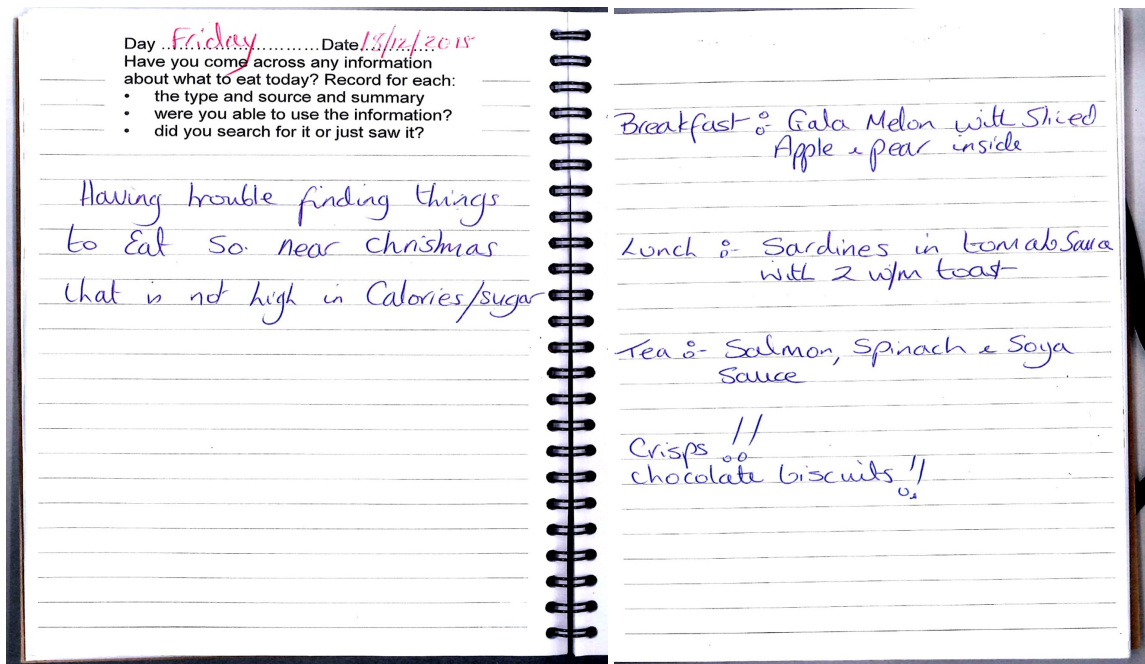 Day ..Friday.............Date18/12/2015
Have you come across any information
about what to eat today? Record for each:
• the type and source and summary
• were you able to use the information?
• did you search for it or just saw it?
Having trouble finding things
to Eat so. near christmas
that is not high in Calories/sugar
Breakfast :- Gala Melon with Sliced
Apple & pear inside
Lunch :- Sardines in tomato Sauce
with 2 w/m toast
Tea :- Salmon, Spinach & Soya
Sauce
Crisps !!
chocolate biscuits !!